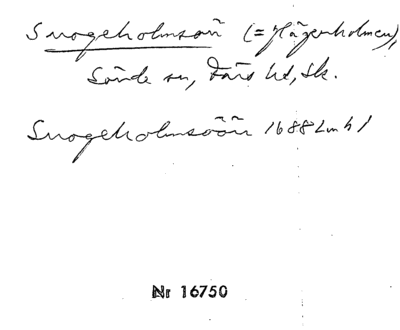 Snogeholmsön (= Hägerholmen),
Sövde sn, Färs hd, Sk.
Snogeholmsöön 1688 Lmh 1
Nr 16750